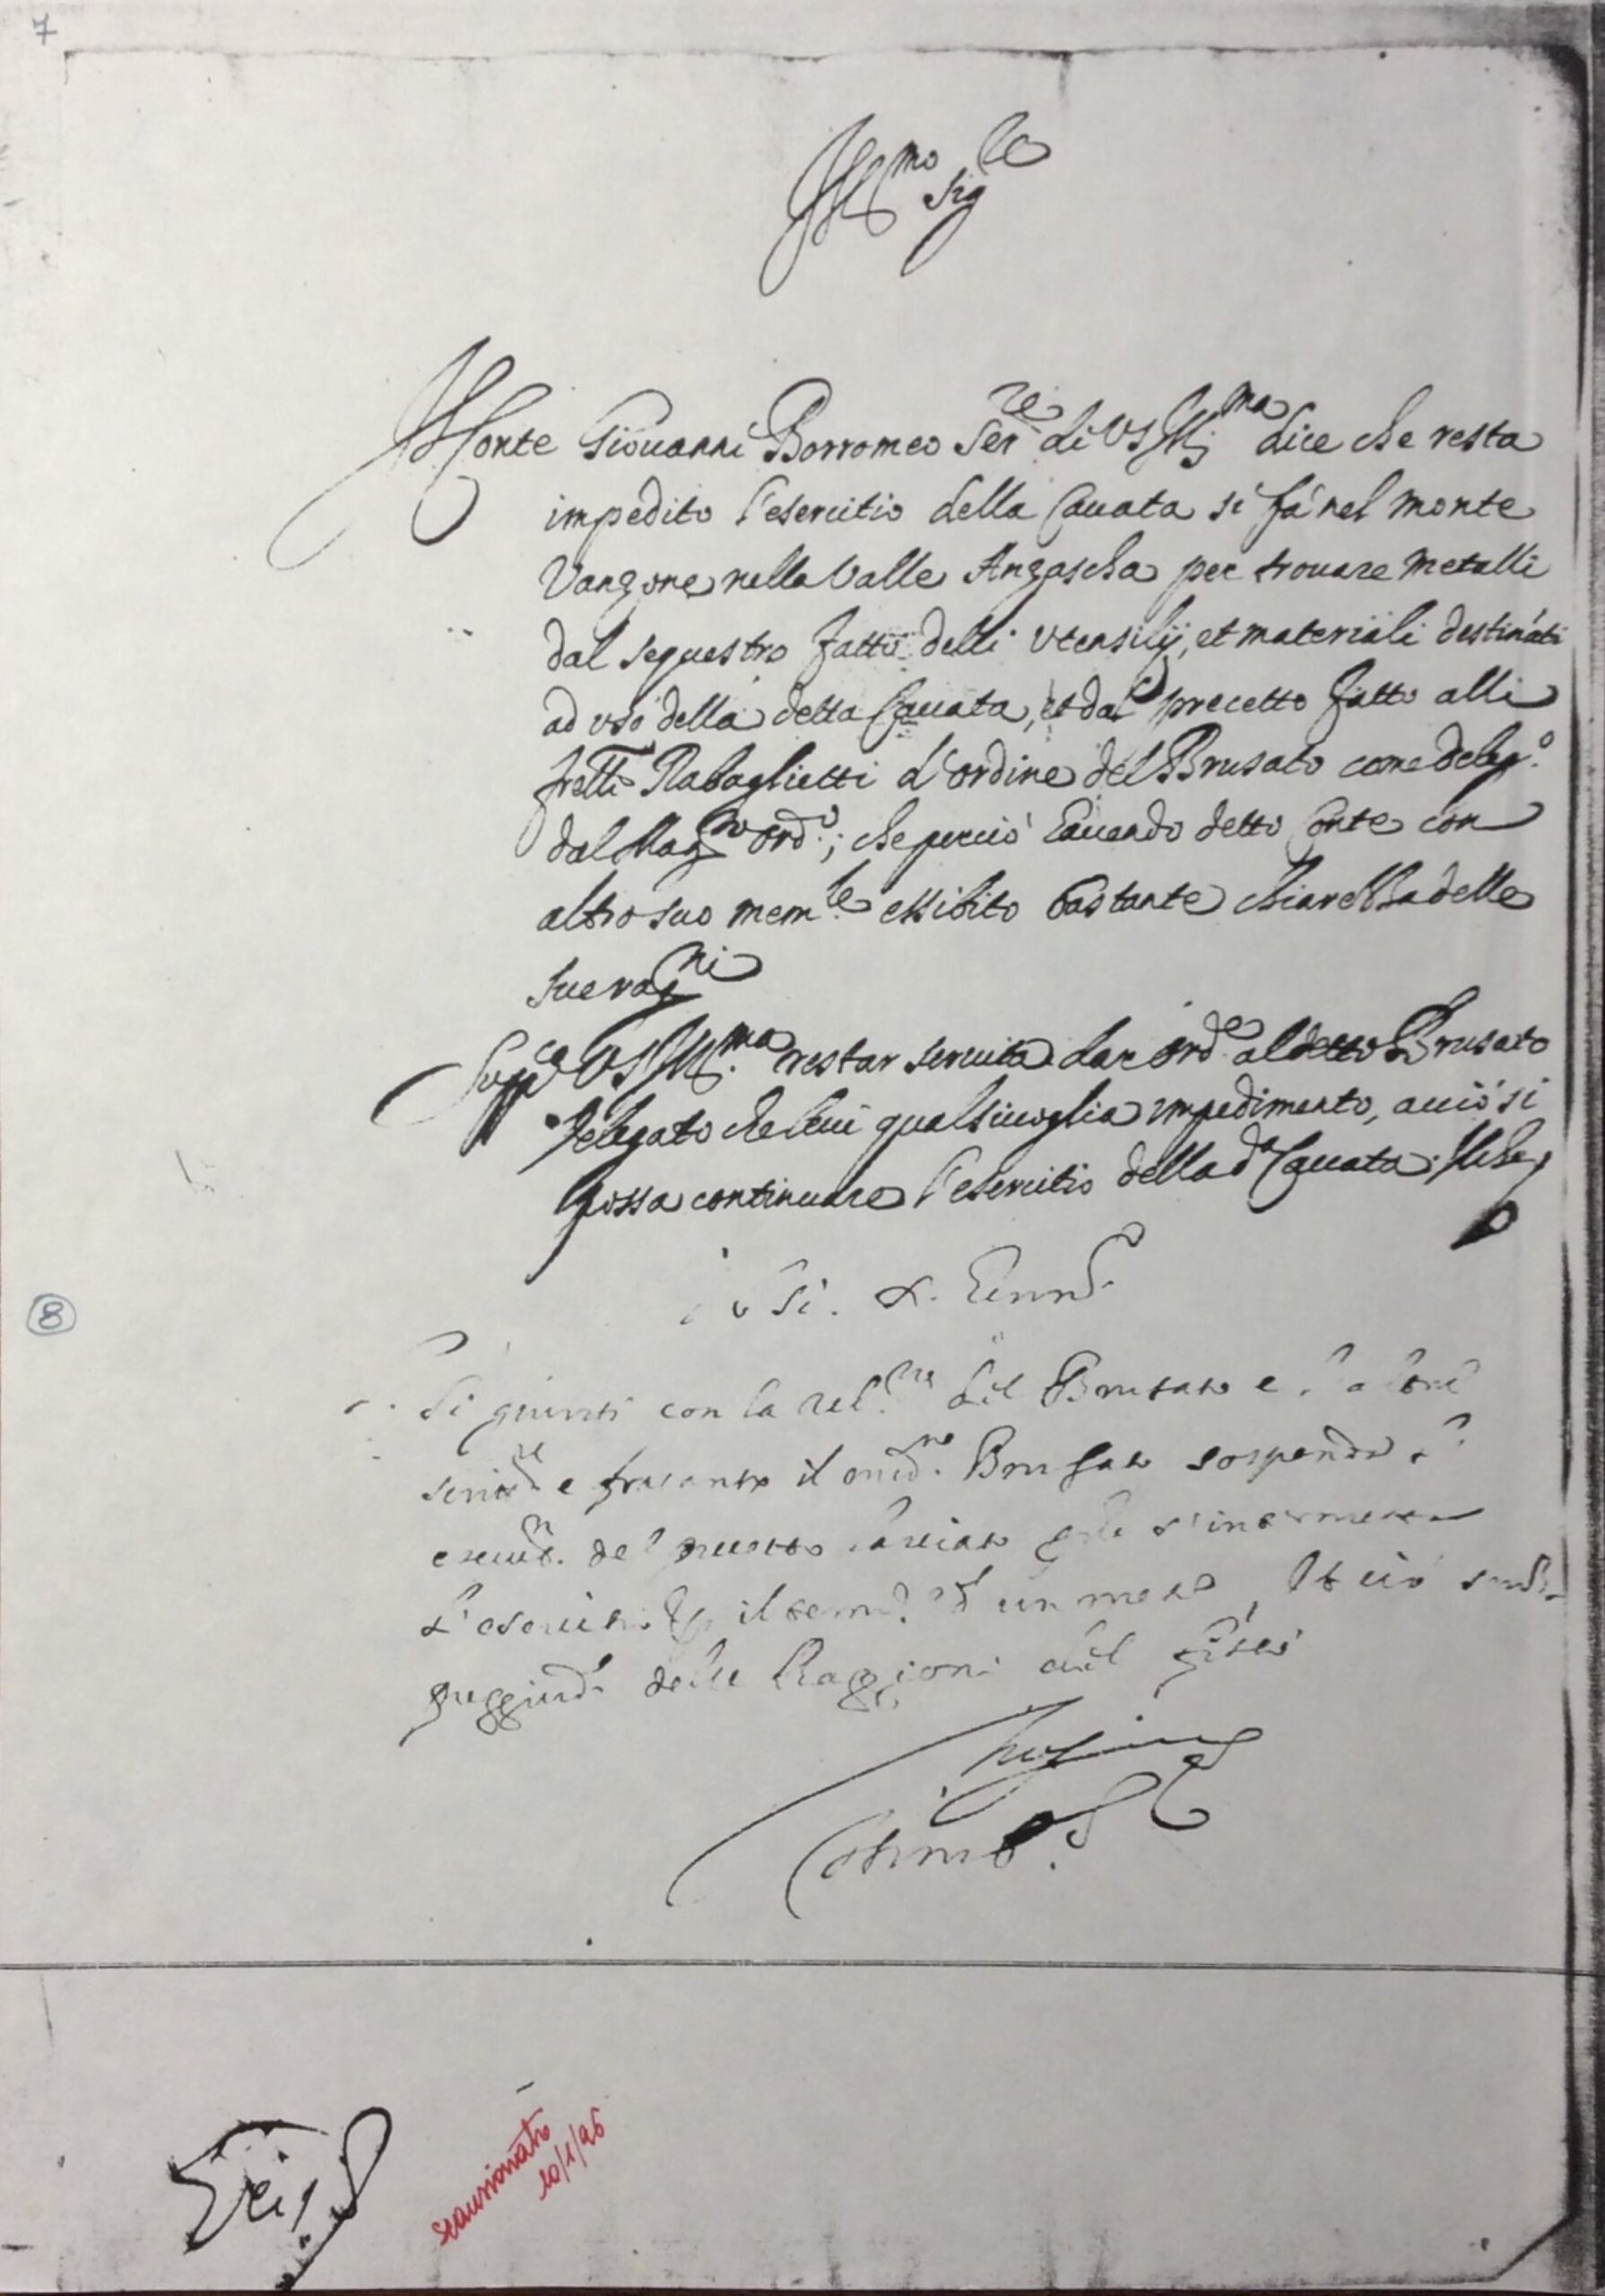 7
Ill.mo Sig.re
Conte Giouanni Borromeo Ser.re di VS Ill.ma dice che resta
impedito l'esercitio della Cauata si fà nel monte
Vanzone nella Valle Anzascha per trouare metalli
dal sequestro fatto delli vtensilij, et materiali destinati
ad uso della detta Cauata, et dal precetto fatto alli
fretlli Rabaglietti d'ordine del Brusato come deleg.o
dal Mag.to ord.o; che perciò hauendo detto Conte con
altro suo mem.le essibito bastante chiarezza delle
sue rag.ni
Supp.ca VS Ill.ma restar seruita dar ord.e al detto Brusato
delegato che leui qualsiuoglia impedimento, acciò si
possa continuare l'esercitio della d.a Cauata. Il che,
8
Si giunti con la rel.ne del Brusato e l'altre
scritt.re e fratanto il med.mo Brusato sospenda l'
esecut.ne del precetto lasciato che s'intrometta
L'esercitio per il term.e d'un mese, et ciò senza
preggiud.o delle Raggioni del fisco
scansionato
10/1/96